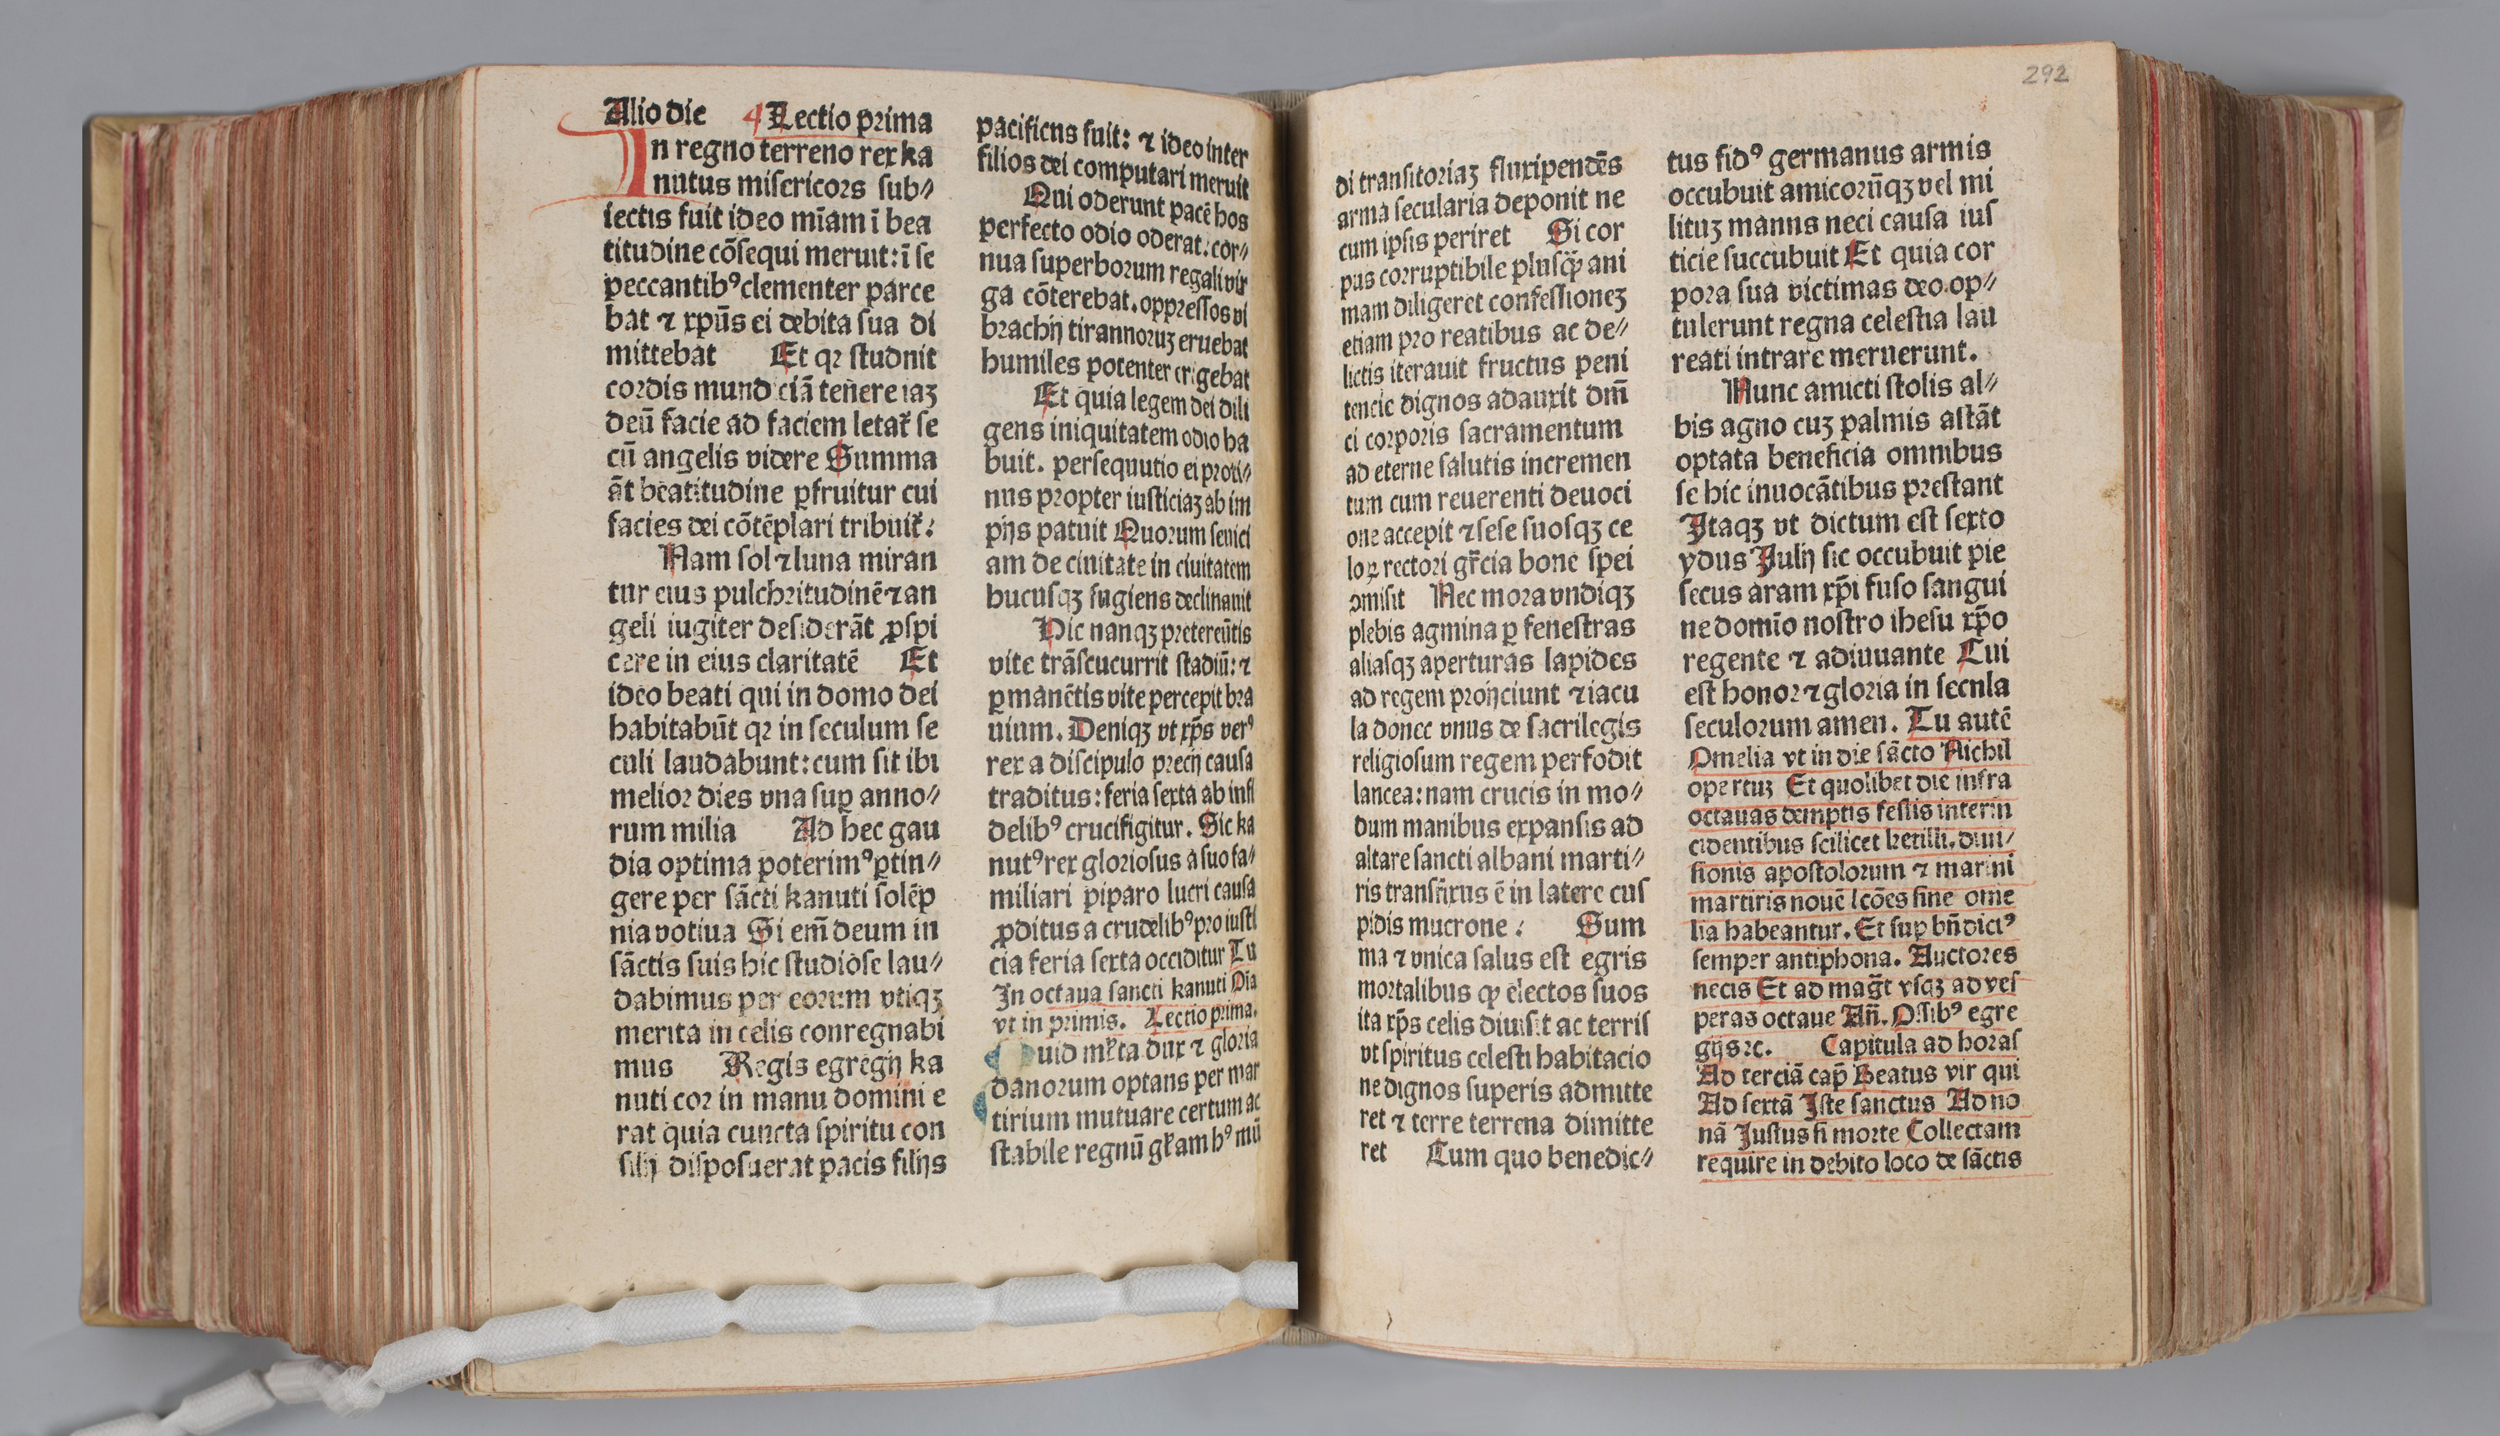 Alio die Lectio prima
In regno terreno rex ka
nutus misericors sub⸗
iectis fuit ideo mĩam ĩ bea
titudine cõsequi meruit: ĩ se
peccantibꝰ clementer parce
bat ⁊ xpũs ei debita sua di
mittebat Et qꝛ studuit
cordis mundiciã tenere iaꝫ
deũ facie ad faciem letat᷑ se
cũ angelis videre Summa
ãt beatitudine ꝑfruitur cui
facies dei cõtẽplari tribuit᷑:
Nam sol ⁊ luna miran
tur eius pulchritudinẽ ⁊ an
geli iugiter desiderãt ꝓspi
cere in eius claritatẽ Et
ideo beati qui in domo dei
habitabũt qꝛ in seculum se
culi laudabunt: cum sit ibi
melior dies vna suꝑ anno⸗
rum milia Ad hec gau
dia optima poterimꝰ ꝑtin⸗
gere per sãcti kanuti solẽp
nia votiua Si em̃ deum in
sãctis suis hic studiose lau⸗
dabimus per eorum vtiqꝫ
merita in celis conregnabi
mus Regis egregij ka
nuti cor in manu domini e
rat quia cuncta spiritu con
silij disposuerat pacis filijs
pacificus fuit: ⁊ ideo inter
filios dei computari meruit
Qui oderunt pacẽ hos
perfecto odio oderat: cor⸗
nua superborum regali vir
ga cõterebat. oppressos vi
brachij tirannoruꝫ eruebat
humiles potenter erigebat
Et quia legem dei dili
gens iniquitatem odio ha
buit. persequutio ei proti⸗
nus propter iusticiaꝫ ab im
pijs patuit Quorum seuici
am de ciuitate in ciuitatem
hucusqꝫ fugiens declinauit
Hic nanqꝫ pretereũtis
vite trãscucurrit stadiũ: ⁊
ꝑmanẽtis vite percepit bra
uium. Deniqꝫ vt xp̃s verꝰ
rex a discipulo precij causa
traditus: feria sexta ab infi
delibꝰ crucifigitur. Sic ka
nutꝰ rex gloriosus a suo fa⸗
miliari piparo lucri causa
ꝓditus a crudelibꝰ pro iusti
cia feria sexta occiditur Tu
In octaua sancti kanuti Oĩa
vt in primis. Lectio prima.
uid mr̃ta dux ⁊ gloria
danorum optans per mar
tirium mutuare certum ac
stabile regnũ gl᷑am hꝰ mũ
292
di transitoriaꝫ fluxipendẽs
arma secularia deponit ne
cum ipsis periret Si cor
pus corruptibile plusqꝫ̃ ani
mam diligeret confessioneꝫ
etiam pro reatibus ac de⸗
lictis iterauit fructus peni
tencie dignos adauxit dm̃
ci corporis sacramentum
ad eterne salutis incremen
tum cum reuerenti deuoci
one accepit ⁊ sese suosqꝫ ce
loꝝ rectori gr̃cia bone spei
omisit Nec mora vndiqꝫ
plebis agmina ꝑ fenestras
aliasqꝫ aperturas lapides
ad regem proijciunt ⁊ iacu
la donec vnus de sacrilegis
religiosum regem perfodit
lancea: nam crucis in mo⸗
dum manibus expansis ad
altare sancti albani marti⸗
ris transfixus ẽ in latere cus
pidis mucrone: Sum
ma ⁊ vnica salus est egris
mortalibus qꝫ electos suos
ita xp̃s celis diuisit ac terris
vt spiritus celesti habitacio
ne dignos superis admitte
ret ⁊ terre terrena dimitte
ret Cum quo benedic⸗
tus fidꝰ germanus armis
occubuit amicorũqꝫ vel mi
lituꝫ manus neci causa ius
ticie succubuit Et quia cor
pora sua victimas deo op⸗
tulerunt regna celestia lau
reati intrare meruerunt.
Nunc amicti stolis al⸗
bis agno cuꝫ palmis astãt
optata beneficia omnibus
se hic inuocãtibus prestant
Itaqꝫ vt dictum est sexto
ydus Julij sic occubuit pie
secus aram xp̃i fuso sangui
ne domĩo nostro ihesu xp̃o
regente ⁊ adiuuante Cui
est honor ⁊ gloria in secula
seculorum amen. Tu autẽ
Omelia vt in die sãcto Nichil
opertuꝫ Et quolibet die infra
octauas demptis festis interin
cidentibus scilicet ketilli. diui⸗
sionis apostolorum ⁊ marini
martiris nouẽ lcões sine ome
lia habeantur. Et suꝑ bñdictꝰ
semper antiphona. Auctores
necis Et ad mag̃t vsqꝫ ad ves
peras octaue Añ. Ossibꝰ egre
gijs ⁊c. Capitula ad horas
Ad terciã cap̃ Beatus vir qui
Ad sextã Iste sanctus Ad no
nã Justus si morte Collectam
require in debito loco de sãctis